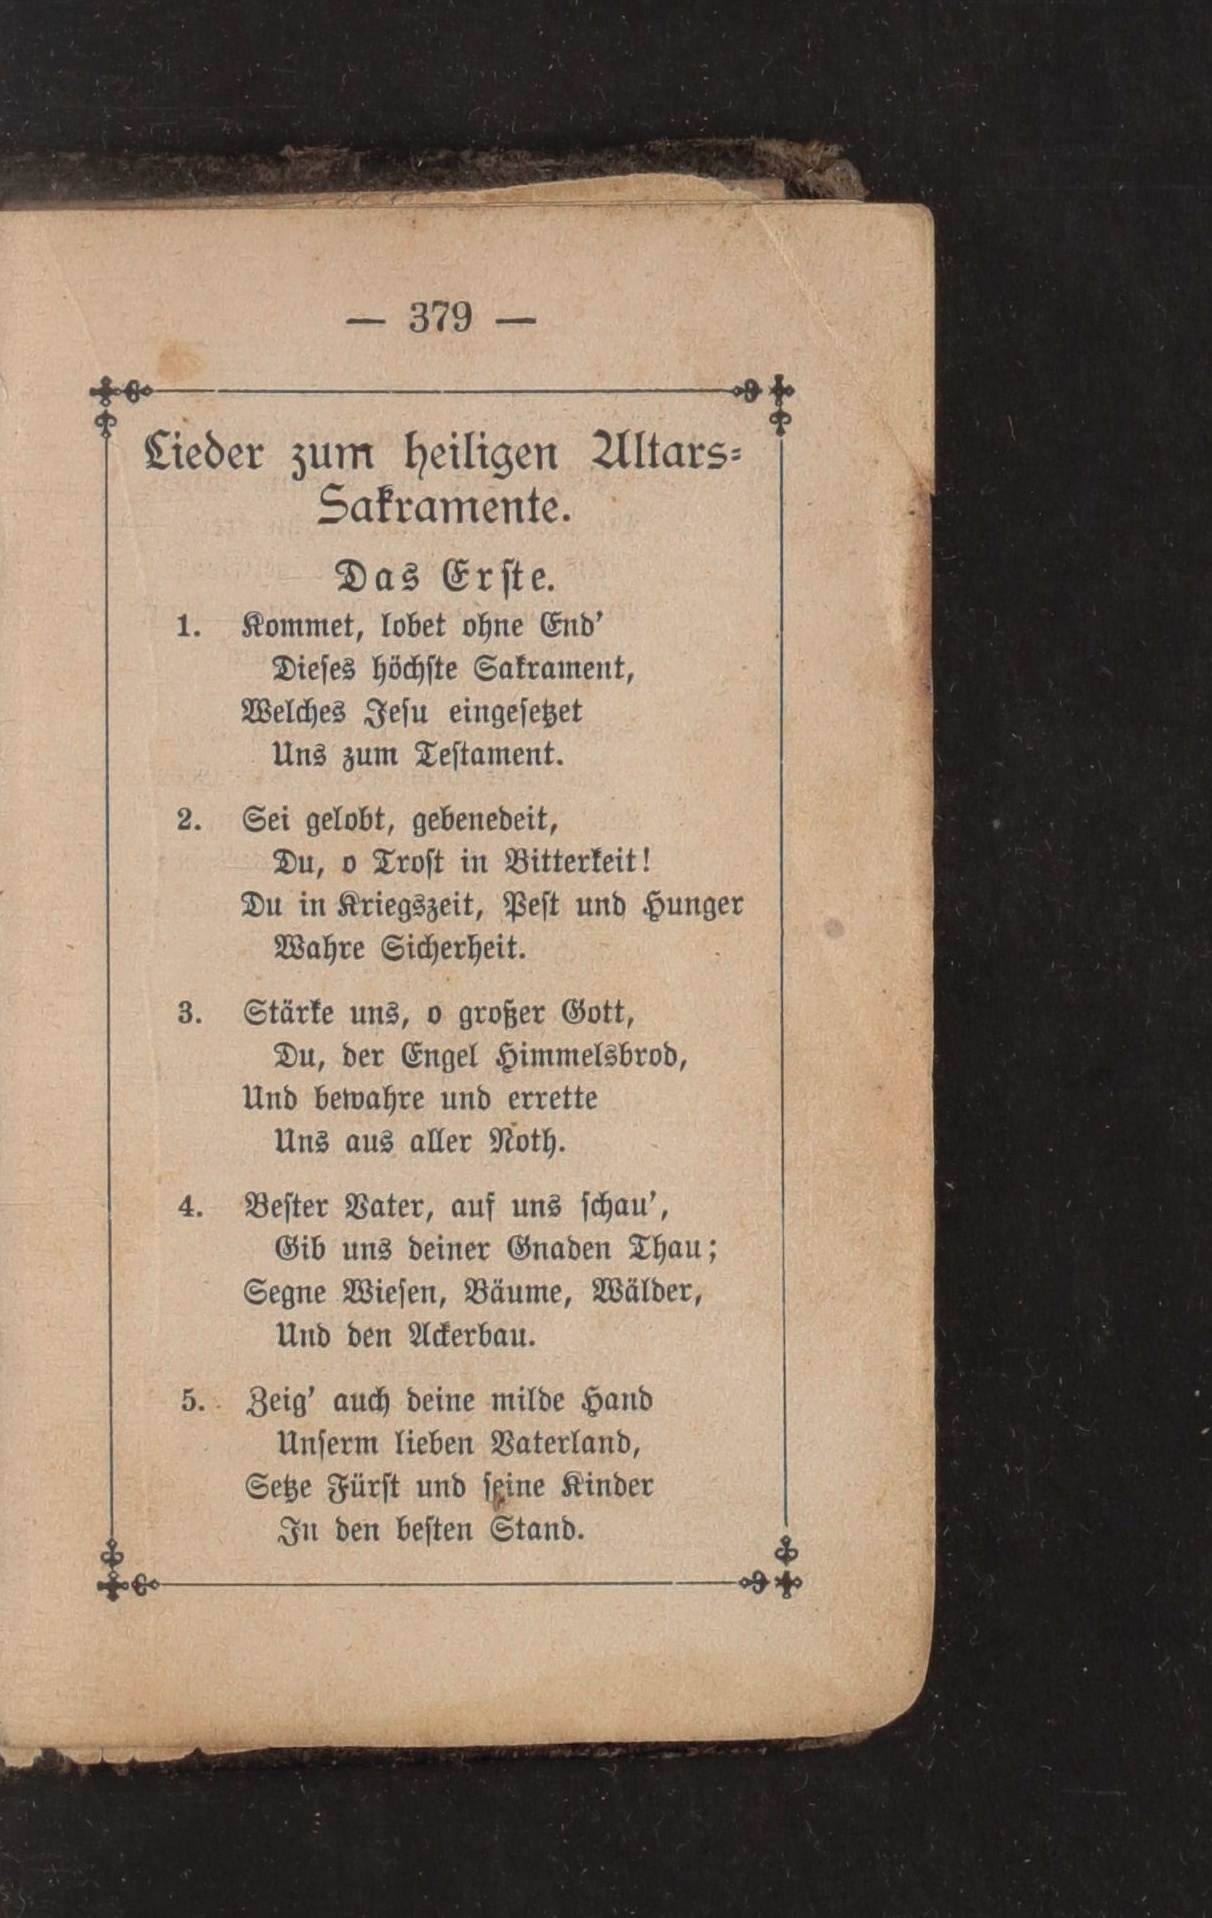 — 379 —
Lieder zum heiligen Altars-
Sakramente.
Das Erste.
1. Kommet, lobet ohne End’
Dieses höchste Sakrament,
Welches Jesu eingesetzet
Uns zum Testament.
2. Sei gelobt, gebenedeit,
Du, o Trost in Bitterkeit!
Du in Kriegszeit, Pest und Hunger
Wahre Sicherheit.
3. Stärke uns, o großer Gott,
Du, der Engel Himmelsbrod,
Und bewahre und errette
Uns aus aller Noth.
4. Bester Vater, auf uns schau’,
Gib uns deiner Gnaden Thau;
Segne Wiesen, Bäume, Wälder,
Und den Ackerbau.
5. Zeig’ auch deine milde Hand
Unserm lieben Vaterland,
Setze Fürst und seine Kinder
In den besten Stand.